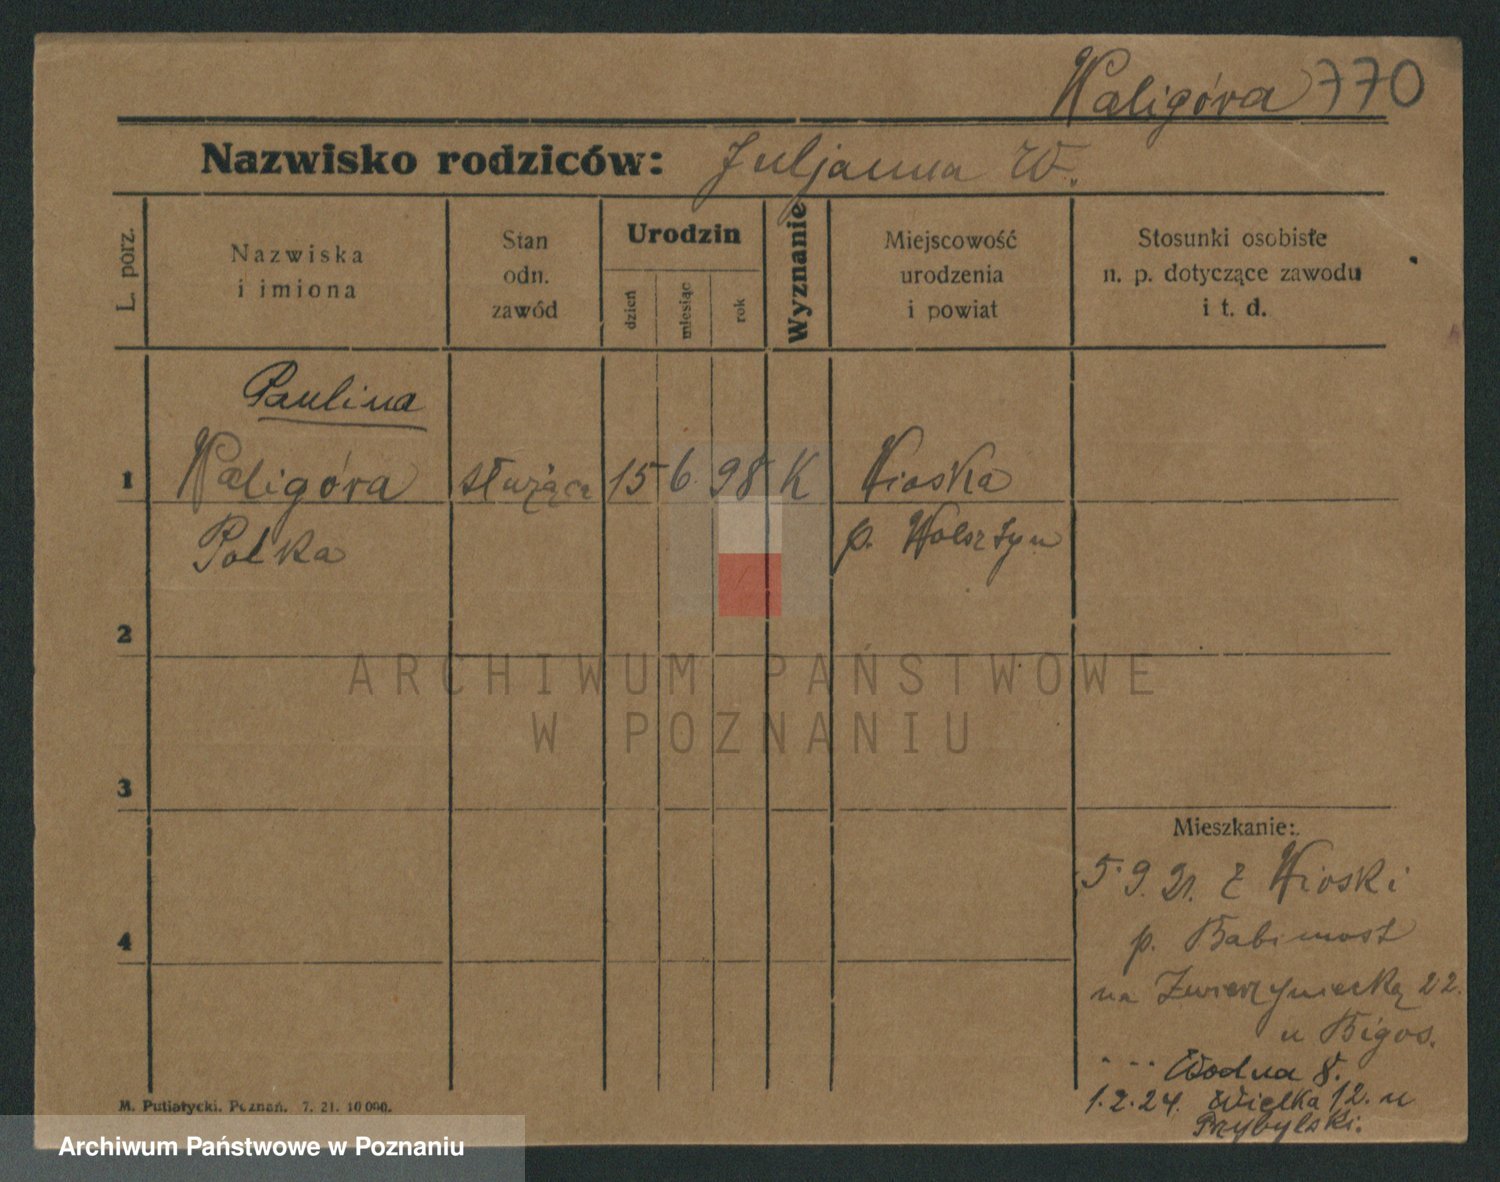 Waligóra 770
Nazwisko rodziców: Juljanna W.
L. porz.
Nazwiska
i imiona
Stan
odn.
zawód
Urodzin
dzień
miesiąc
rok
Wyznanie
Miejscowość
urodzenia
i powiat
Stosunki osobiste
n. p. dotyczące zawodu
i t. d.
Paulina
1 Waligóra służąca 15 6. 98 K Wioska
Polka p. Wolsztyn
2
3
4
Mieszkanie:
5.9.21. z Wioski
p. Babimost
na Zwierzyniecką 22.
u Bigos.
Wodna 8.
1.2.24. Wielka 12. u
Przybylski.
M. Putiatycki. Poznań. 7. 21. 10 000.
ARCHIWUM PAŃSTWOWE
W POZNANIU
Archiwum Państwowe w Poznaniu